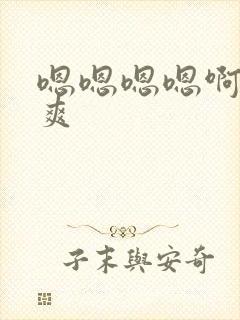 嗯嗯嗯嗯啊
爽
子末與安奇